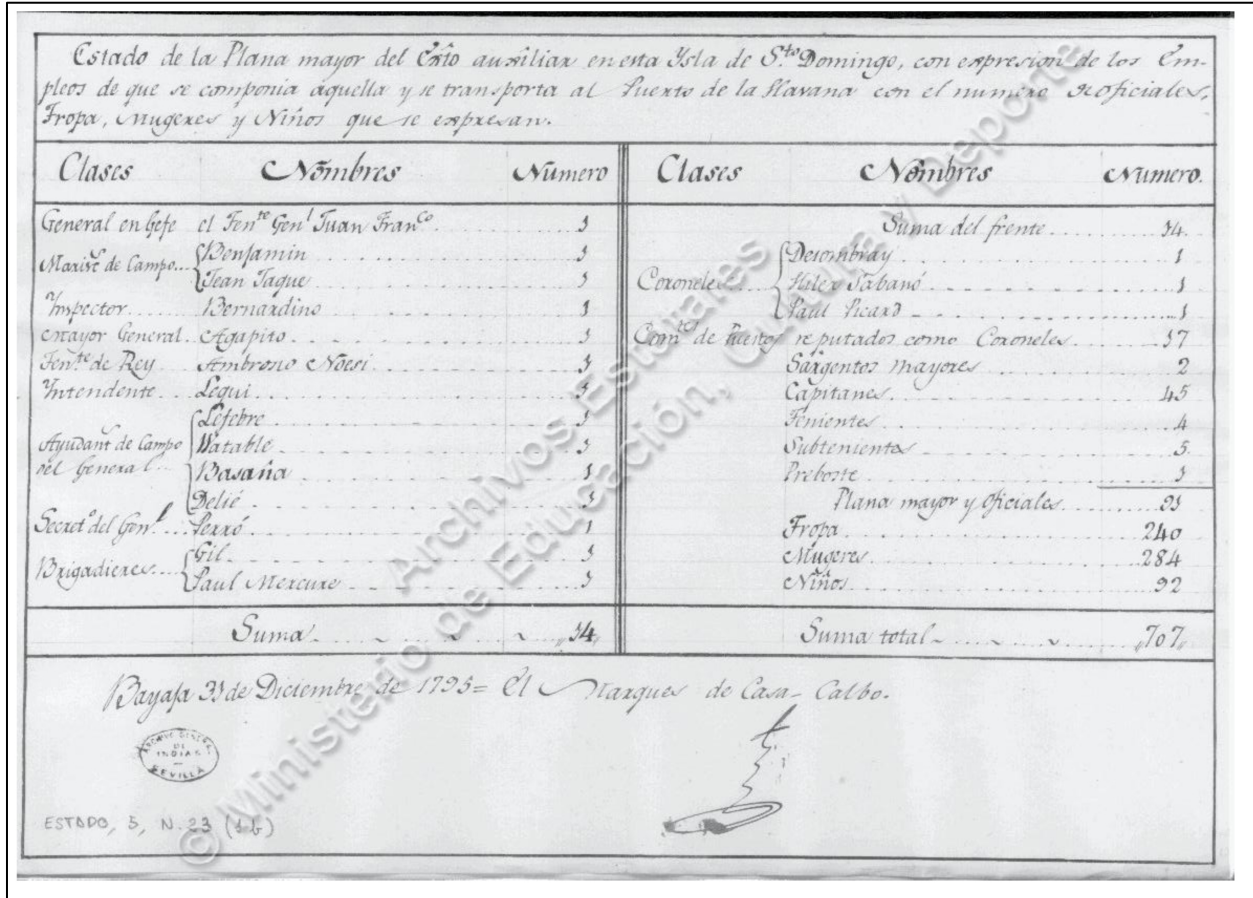 Estado de la Plana mayor del Exto auxiliar en esta Ysla de S.to Domingo, con expresion de los Em-
pleos de que se componia aquella y se transporta al Puerto de la Havana con el numero de oficiales,
Tropa, Mugeres y Niños que se expresan.
Clases Nombres Numero
General en Gefe el Ten.te Gen.l Juan Fran.co 1
Marisc.s de Campo Benjamin 1
Jean Jaque 1
Inspector Bernardino 1
Mayor General Agapito 1
Ten.te de Rey Ambrosio Noesi 1
Intendente Lequi 1
Ayudant.s de Campo del General Lefebre 1
Watable 1
Basaña 1
Delié 1
Secret.o del Gen.l Perró 1
Brigadieres Gil 1
Paul Mercure 1
Suma 14
Clases Nombres Numero.
Suma del frente 14
Coroneles Desombray 1
Hiler Tabanó 1
Paul Picard 1
Com.tes de Puertos reputados como Coroneles 17
Sargentos mayores 2
Capitanes 45
Tenientes 4
Subtenientes 5
Preboste 1
Plana mayor y Oficiales 91
Tropa 240
Mugeres 284
Niños 92
Suma total 707
Bayaja 31 de Diciembre de 1795 = El Marques de Casa-Calbo.
ARCHIVO GENERAL
DE
INDIAS
SEVILLA
ESTADO, 5, N. 23 (1b)
© Ministerio de Educación, Cultura y Deporte
Archivos Estatales